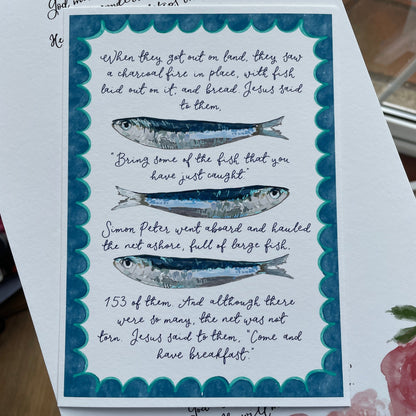 When they got out on land, they saw
a charcoal fire in place, with fish
laid out on it, and bread. Jesus said
to them,
"Bring some of the fish that you
have just caught"
Simon Peter went aboard and hauled
the net ashore, full of large fish.
153 of them. And although there
were so many, the net was not
torn. Jesus said to them, "Come and
have breakfast."
God